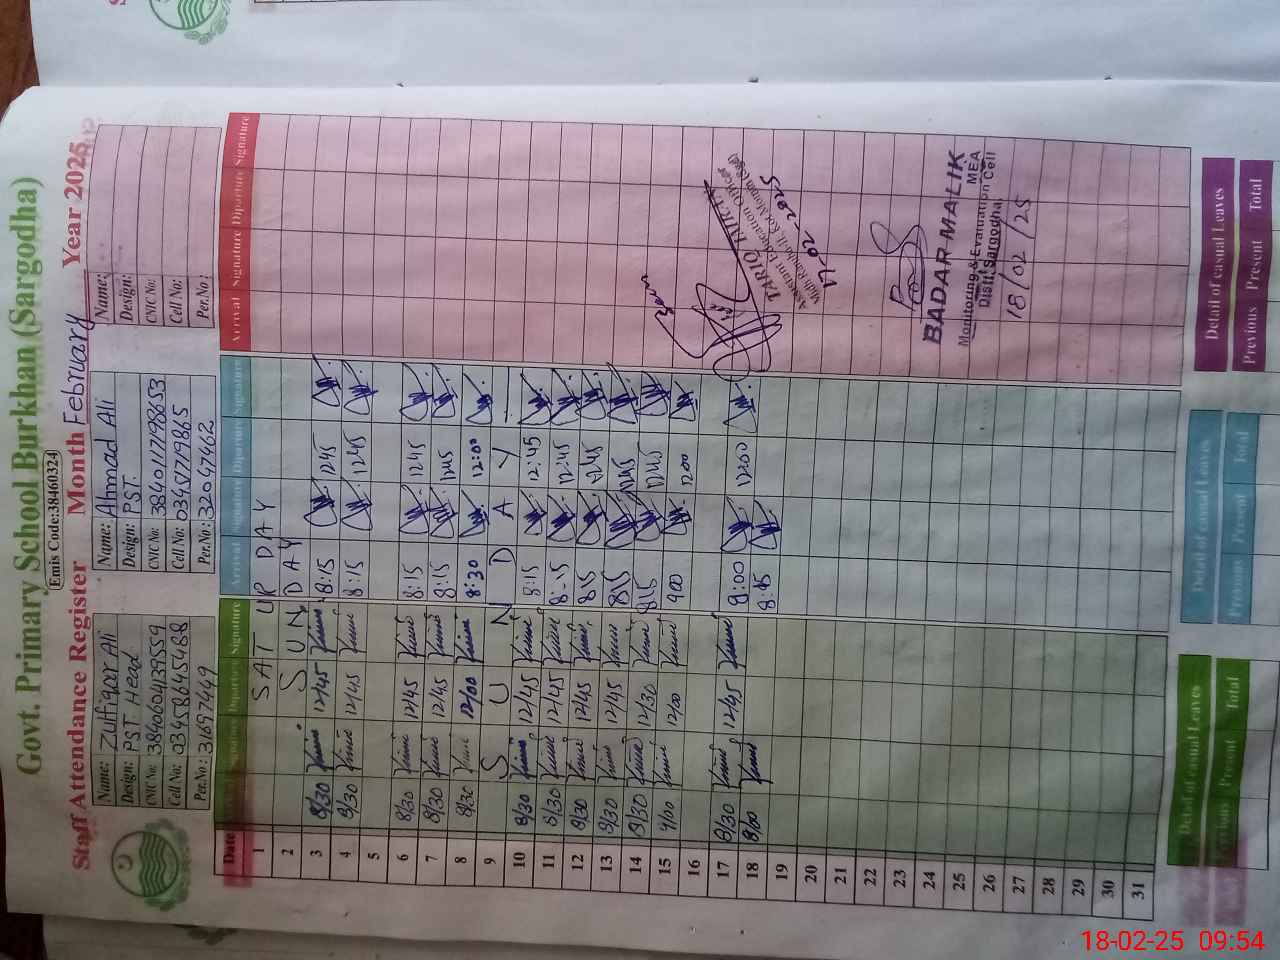 Govt. Primary School Burkhan (Sargodha)
Emis Code:38460324
Staff Attendance Register Month February Year 2025
Name: Zulfiqar Ali
Design: PST Head
CNIC No: 3840604139559
Cell No: 03458645488
Per.No: 31697449
Name: Ahmad Ali
Design: PST.
CNIC No: 3840117798653
Cell No: 03457719865
Per.No: 32047462
Name:
Design:
CNIC No:
Cell No:
Per.No:
Date Signature Diparture Signature Arrival Signature Diparture Signature Arrival Signature Diparture Signature
1 SAT UR DAY
2 SUN DAY
3 8/30 12/45 8:15 1245
4 8/30 12/45 8:15 1245
5
6 8/30 12/45 8:15 1245
7 8/30 12/45 8:15 1245
8 8/30 12/00 8:30 12:00
9 S U N D A Y
10 8/30 12/45 8:15 12:45
11 8/30 12/45 8:15 12:45
12 8/30 12/45 815 1245
13 8/30 12/45 815 1245
14 8/30 12/30 815 1245
15 9/00 12/00 900 1200
16
17 8/30 12/45 8:00 1200
18 8/00 8:15
19
20
21
22
23
24
25
26
27
28
29
30
31
TARIQ
Assistant Education Officer
17-02-2025
BADAR MALIK
MEA
Monitoring & Evaluation Cell
Distt Sargodha
18/02/25
Detail of casual Leaves
Previous Present Total
Detail of casual Leaves
Previous Present Total
Detail of casual Leaves
Previous Present Total
18-02-25 09:54